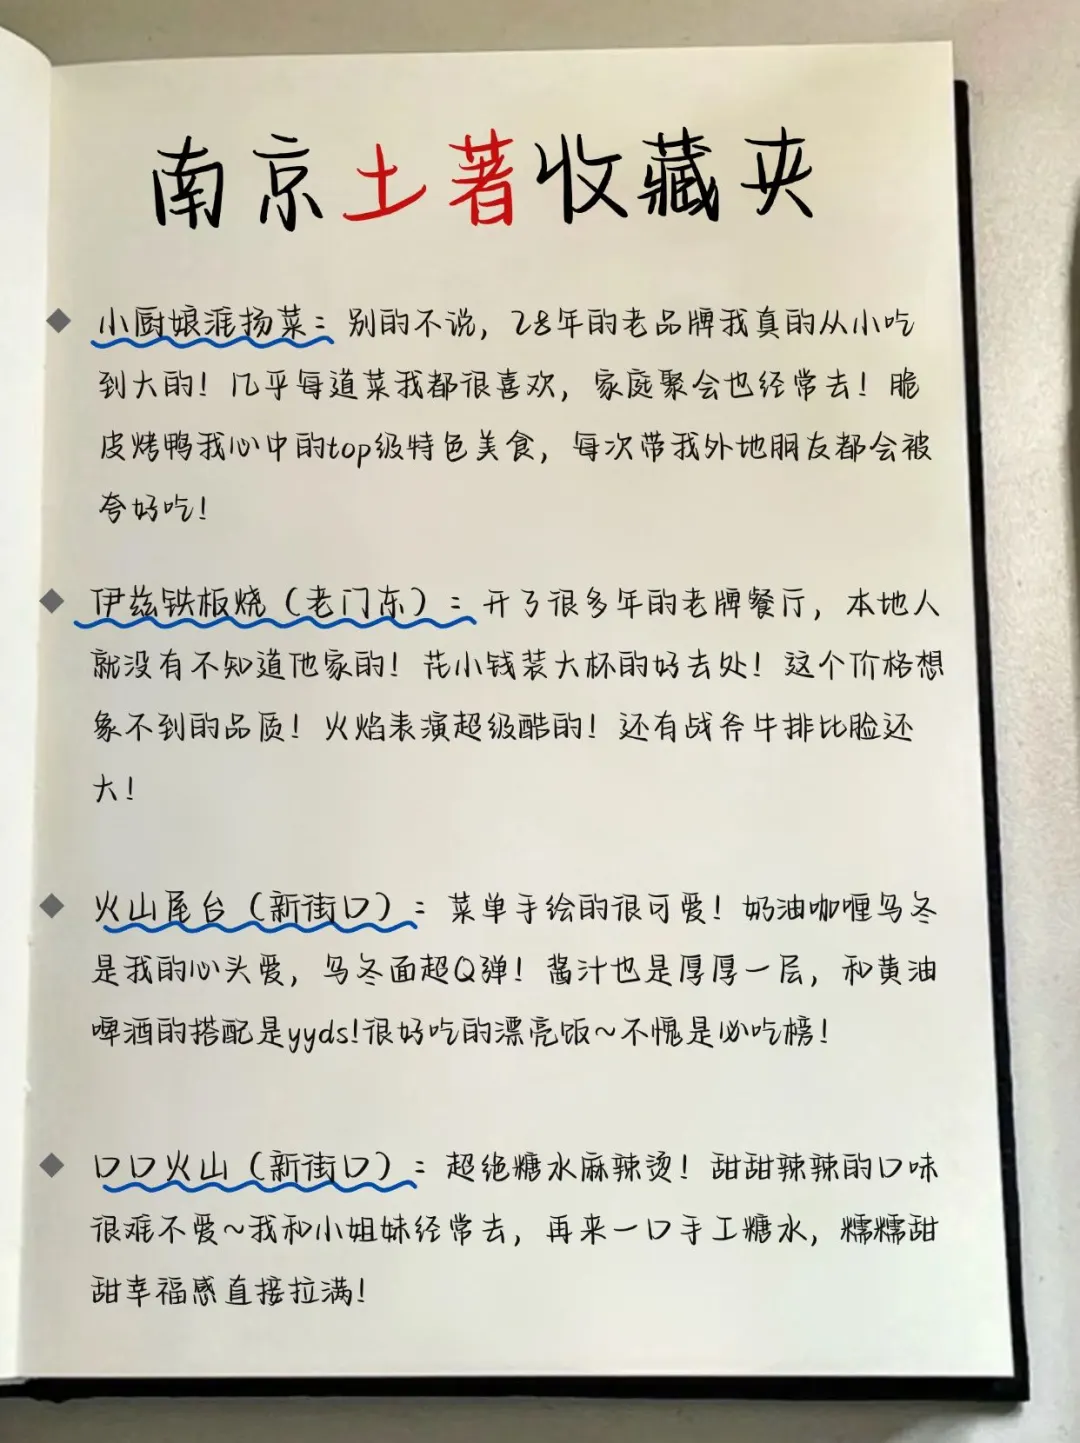 南京土著收藏夹
小厨娘淮扬菜：别的不说，28年的老品牌我真的从小吃
到大的！几乎每道菜我都很喜欢，家庭聚会也经常去！脆
皮烤鸭我心中的top级特色美食，每次带我外地朋友都会被
夸好吃！
伊兹铁板烧（老门东）：开了很多年的老牌餐厅，本地人
就没有不知道他家的！花小钱装大杯的好去处！这个价格想
象不到的品质！火焰表演超级酷的！还有战斧牛排比脸还
大！
火山尾台（新街口）：菜单手绘的很可爱！奶油咖喱乌冬
是我的心头爱，乌冬面超Q弹！酱汁也是厚厚一层，和黄油
啤酒的搭配是yyds！很好吃的漂亮饭~不愧是必吃榜！
口口火山（新街口）：超绝糖水麻辣烫！甜甜辣辣的口味
很难不爱~我和小姐妹经常去，再来一口手工糖水，糯糯甜
甜幸福感直接拉满！